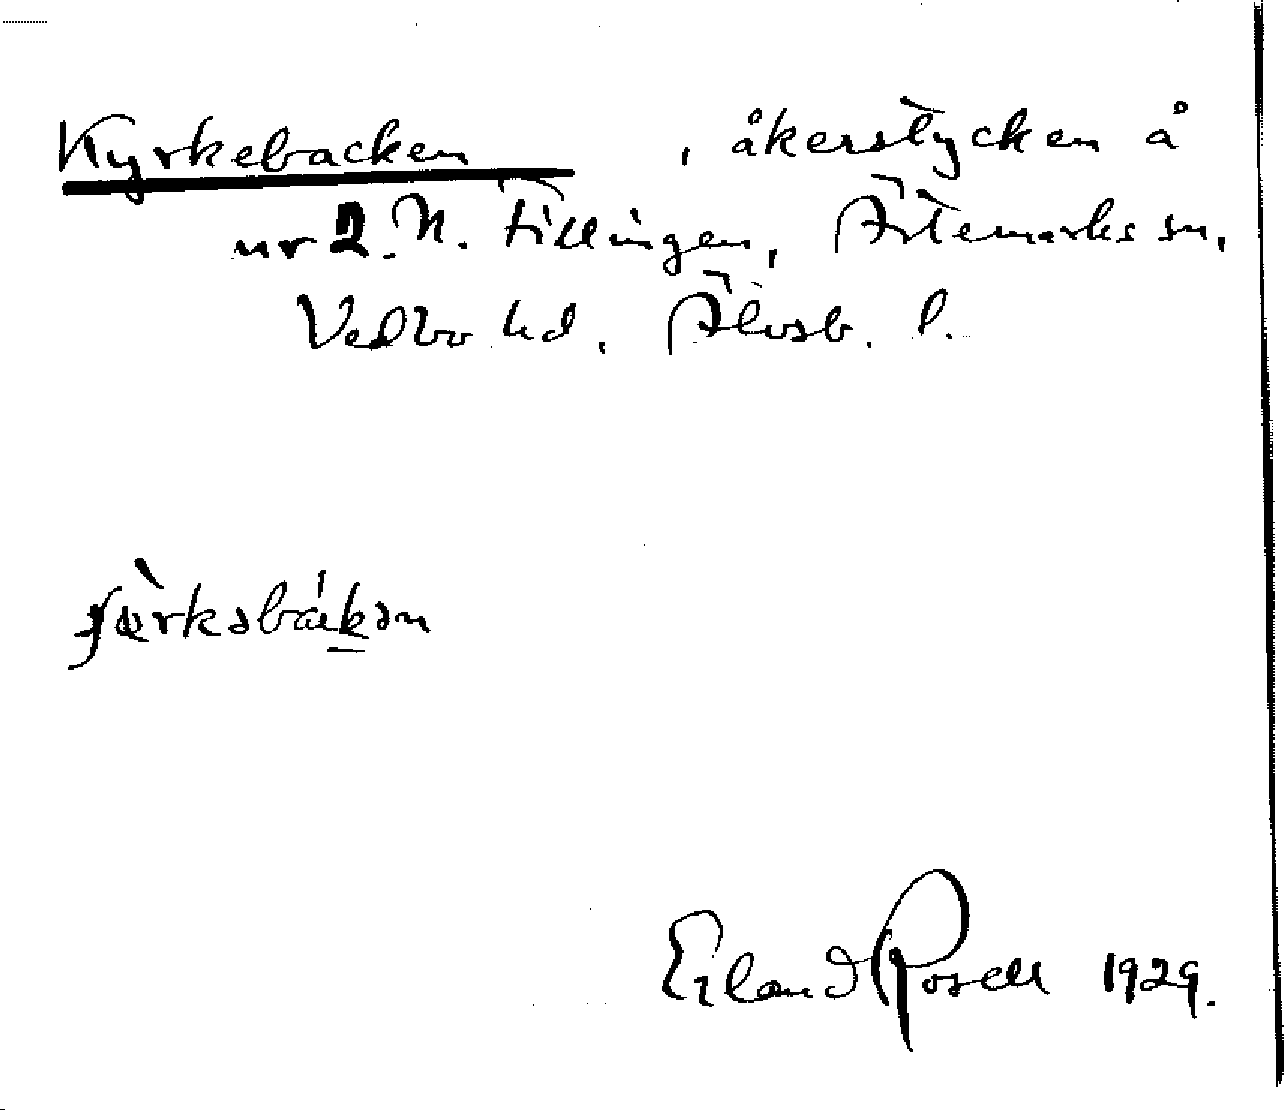 Kyrkebacken, åkerstycken å
nr 2. N. Tillingen, Ärtemarks sn,
Vedbo hd, Älvsb. l.
Erland Rosell 1929.